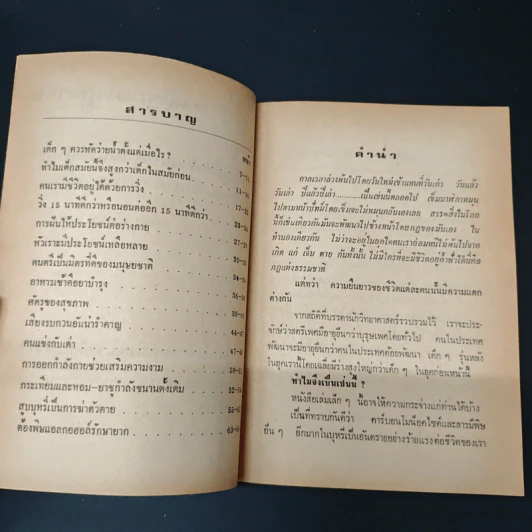 สารบาญ
หน้า
เด็ก ๆ ควรหัดว่ายน้ำตั้งแต่เมื่อไร ?
ทำไมเด็กสมัยนี้จึงสูงกว่าเด็กในสมัยก่อน
คนเรามีชีวิตอยู่ได้ด้วยการวิ่ง
วิ่ง 15 นาทีดีกว่าหรือนอนต่ออีก 15 นาทีดีกว่า
การฝันให้ประโยชน์ต่อร่างกาย
หัวเราะมีประโยชน์เหลือหลาย
ดนตรีเป็นมิตรที่ดีของมนุษยชาติ
อาหารเช้าคือยาบำรุง
ศัตรูของสุขภาพ
เสียงรบกวนอันน่ารำคาญ
คนแข่งกับเต่า
การออกกำลังกายช่วยเสริมความงาม
กระเทียมและหอม-ยาชูกำลังขนานดั้งเดิม
สูบบุหรี่เป็นการฆ่าตัวตาย
ต้องพิษแอลกอฮอล์รักษายาก
คำนำ
กาลเวลาล่วงพ้นไปโดยวันใหม่เข้าแทนที่วันเก่า วันแล้ว
วันเล่า ปีแล้วปีเล่า......เป็นเช่นนี้ตลอดไป เข็มนาฬิกาหมุน
ไปตามหน้าปัทม์โดยเข็มจะไม่หมุนกลับเองเลย สรรพสิ่งในโลก
นี้ก็เช่นเดียวกันมันจะพัฒนาไปข้างหน้าโดยกฎของมันเอง ใน
ทำนองเดียวกัน ไม่ว่าจะอยู่ในยุคใดคนเราย่อมหนีไม่พ้นไปจาก
เกิด แก่ เจ็บ ตาย กันทั้งนั้น ไม่มีใครที่จะมีชีวิตอยู่ค้ำฟ้าได้นี่คือ
กฎแห่งธรรมชาติ
แต่ทว่า ความยืนยาวของชีวิตแต่ละคนนั้นมีความแตก
ต่างกัน
จากสถิติที่บรรดานักวิทยาศาสตร์รวบรวมไว้ เราจะประ-
จักษ์ว่าสตรีเพศมีอายุยืนกว่าบุรุษเพศโดยทั่วไป คนในประเทศ
พัฒนาจะมีอายุยืนกว่าคนในประเทศด้อยพัฒนา เด็ก ๆ รุ่นหลัง
ในยุคเรานี้โดยเฉลี่ยมีร่างสูงใหญ่กว่าเด็ก ๆ ในยุคก่อนหน้านี้
ทำไมจึงเป็นเช่นนี้ ?
หนังสือเล่มเล็ก ๆ นี้อาจให้ความกระจ่างแก่ท่านได้บ้าง
เป็นที่ทราบกันดีว่า คาร์บอนโมน็อคไซด์และสารมีพิษ
อื่น ๆ อีกมากในบุหรี่เป็นอันตรายอย่างร้ายแรงต่อชีวิตของเรา